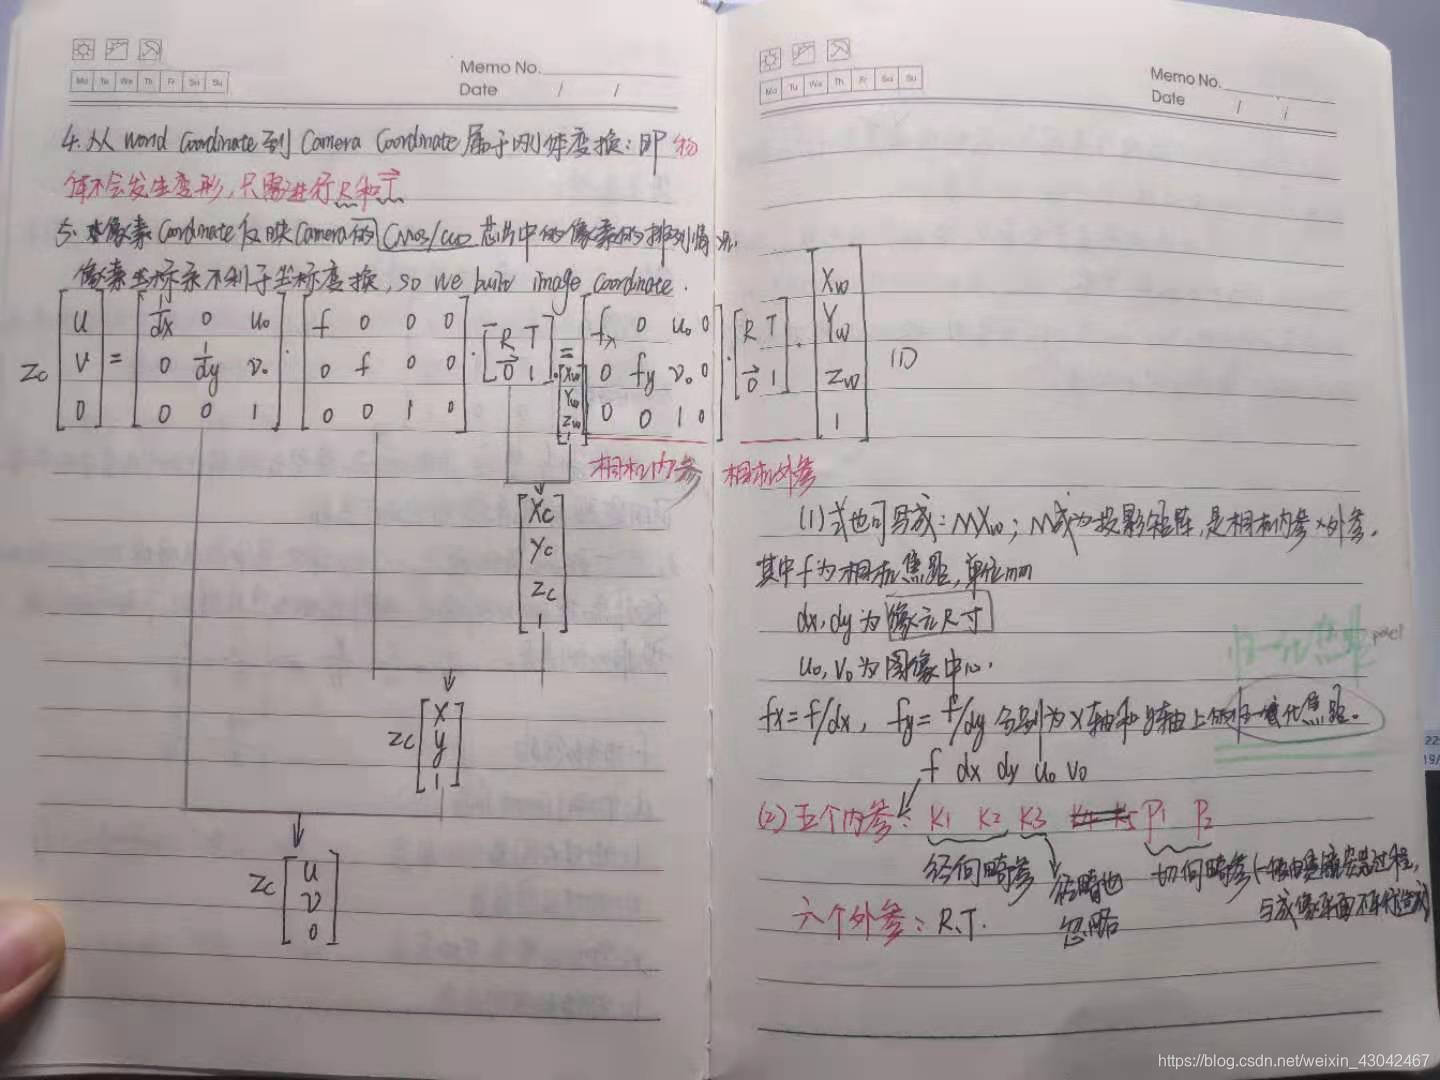 Memo No.
Date / /
Mo Tu We Th Fr Sa Su
4. 从 World Coordinate 到 Camera Coordinate 属于刚体变换：即物
体不会发生变形，只需进行R和T.
5. 像素 Coordinate 反映 Camera 的 Cmos/CCD 芯片中的像素的排列情况.
像素坐标系不利于坐标变换, so we build image Coordinate.
Zc [u v 0] = [1/dx 0 u₀; 0 1/dy v₀; 0 0 1] · [f 0 0 0; 0 f 0 0; 0 0 1 0] · [R T; 0 1] · [Xw Yw Zw 1] = [fx 0 u₀ 0; 0 fy v₀ 0; 0 0 1 0] · [R T; 0 1] · [Xw Yw Zw 1] (1)
相机内参 相机外参
[Xc Yc Zc 1]
Zc [x y 1]
Zc [u v 0]
Memo No.
Date / /
Mo Tu We Th Fr Sa Su
(1) 式也可写成: MXw; M成为投影矩阵, 是相机内参×外参.
其中f为相机焦距, 单位mm
dx, dy 为像元尺寸
u₀, v₀ 为图像中心.
归一化焦距 pixel
fx = f/dx, fy = f/dy 分别为x轴和y轴上的归一化焦距.
f dx dy u₀ v₀
(2) 五个内参: K1 K2 K3 P1 P2
径向畸参 忽略 切向畸参(
与成像平面不平行造成)
六个外参: R.T.
https://blog.csdn.net/weixin_43042467